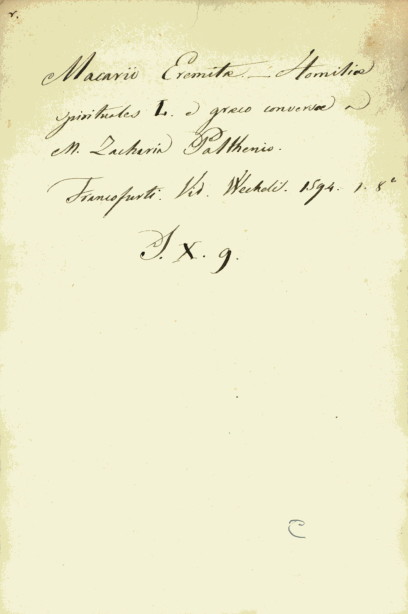 r.
Macarii Eremitæ. — Homiliæ
spirituales L. e græco conversæ a
M. Zacharia Palthenio.
Francofurti. Vid. Wecheli. 1594. 1. 8º
S. X. 9.
C